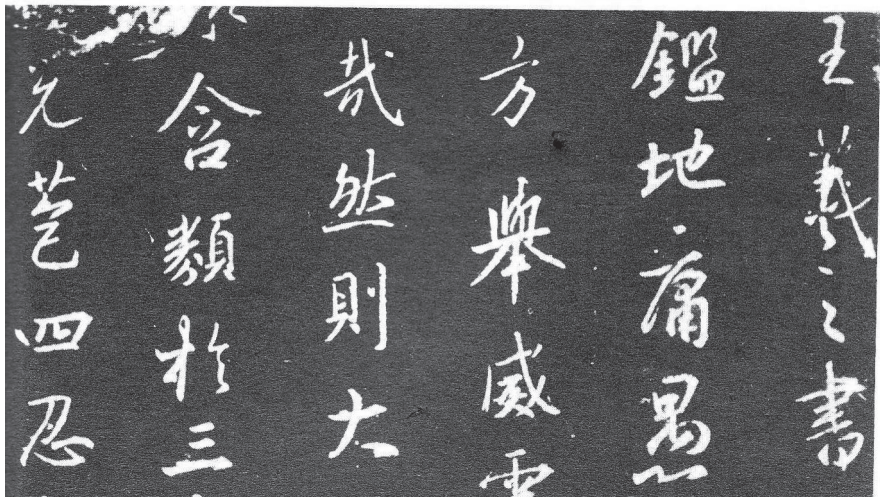 王羲之書
鑑地庸愚
方舉威
哉然則大
含類於三
先苞四忍